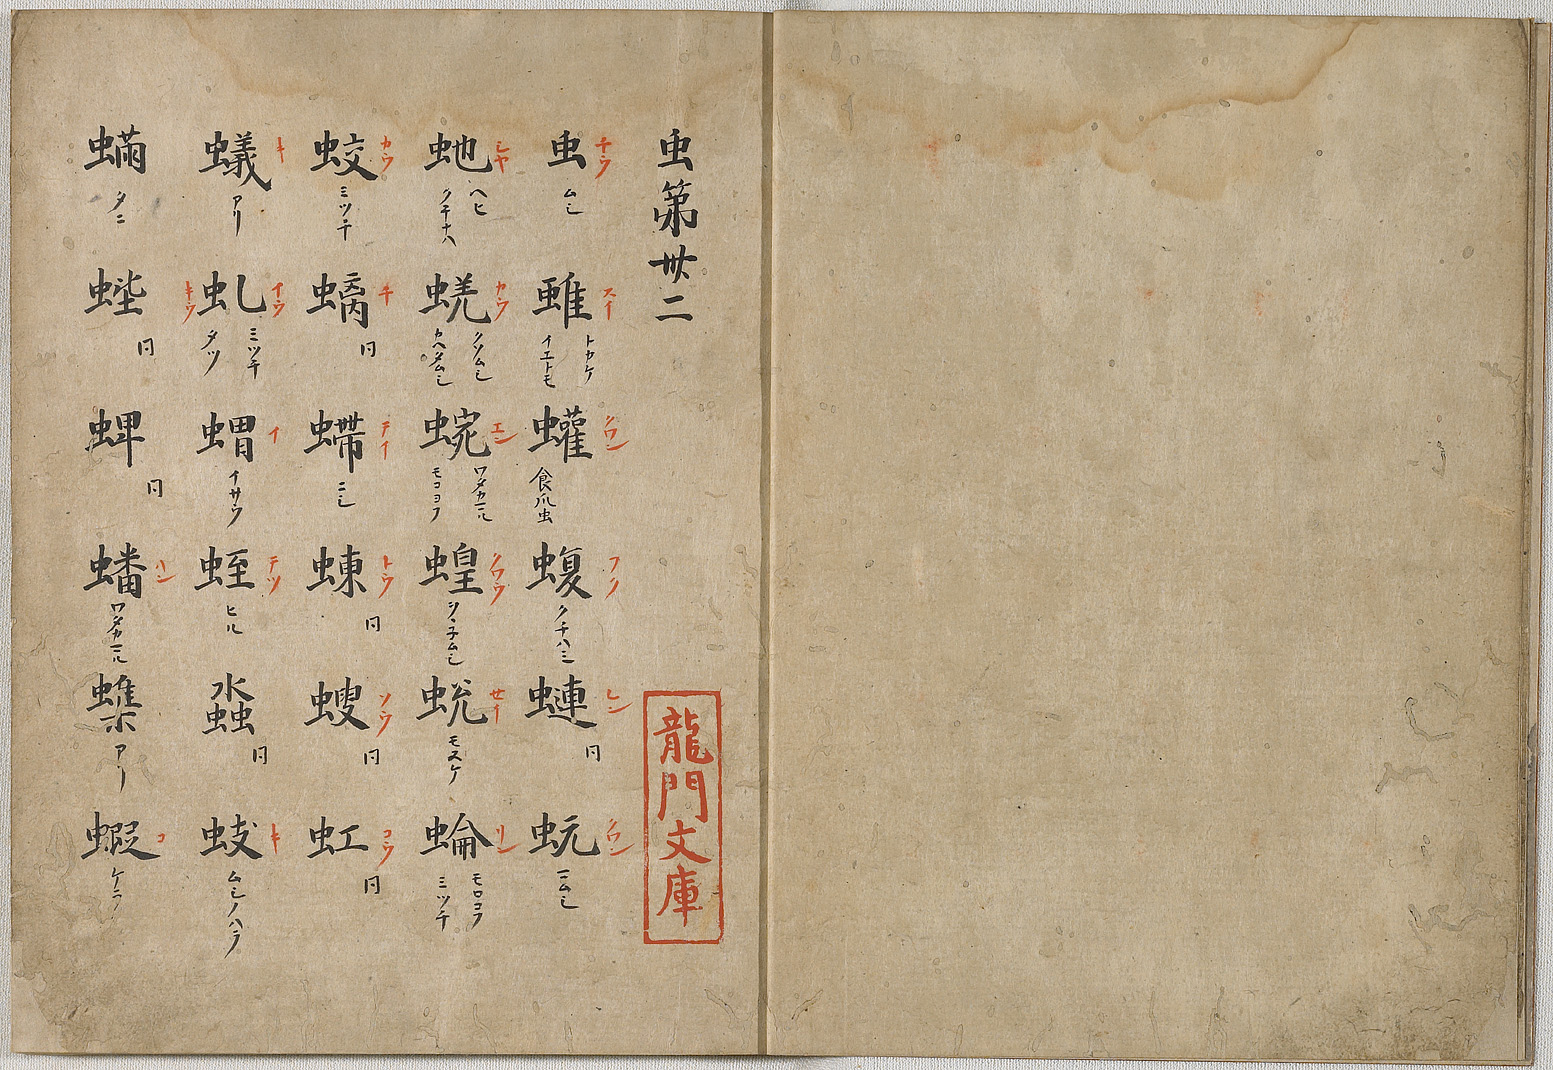 虫第卅二
虫 チウ ムシ 雖 スイ トカケ イエトモ 蠸 クワン 食瓜虫 蝮 フク クチハミ 蝳 レン 同 蚖 クワン ニムシ
虵 シヤ ヘヒ クチナハ 蜣 カウ クソムシ カヘタムシ 蜿 エン ワタカマル モコヨフ 蝗 クワウ ソ子ムシ 蛻 セイ モヌケ 蜦 リン モロコフ ミツチ
蛟 カウ ミツチ 螭 チ 同 螮 テイ ニシ 蝀 トウ 同 螋 ソウ 同 虹 コウ 同
蟻 キ アリ 虬 イウ キウ ミツチ タツ 蝟 イ イサウ 蛭 テツ ヒル 同 蚑 キ ムシノハラ
螨 タニ 同 蜱 同 蟠 ハン ワタカマル アリ 蝦 コ
龍門文庫